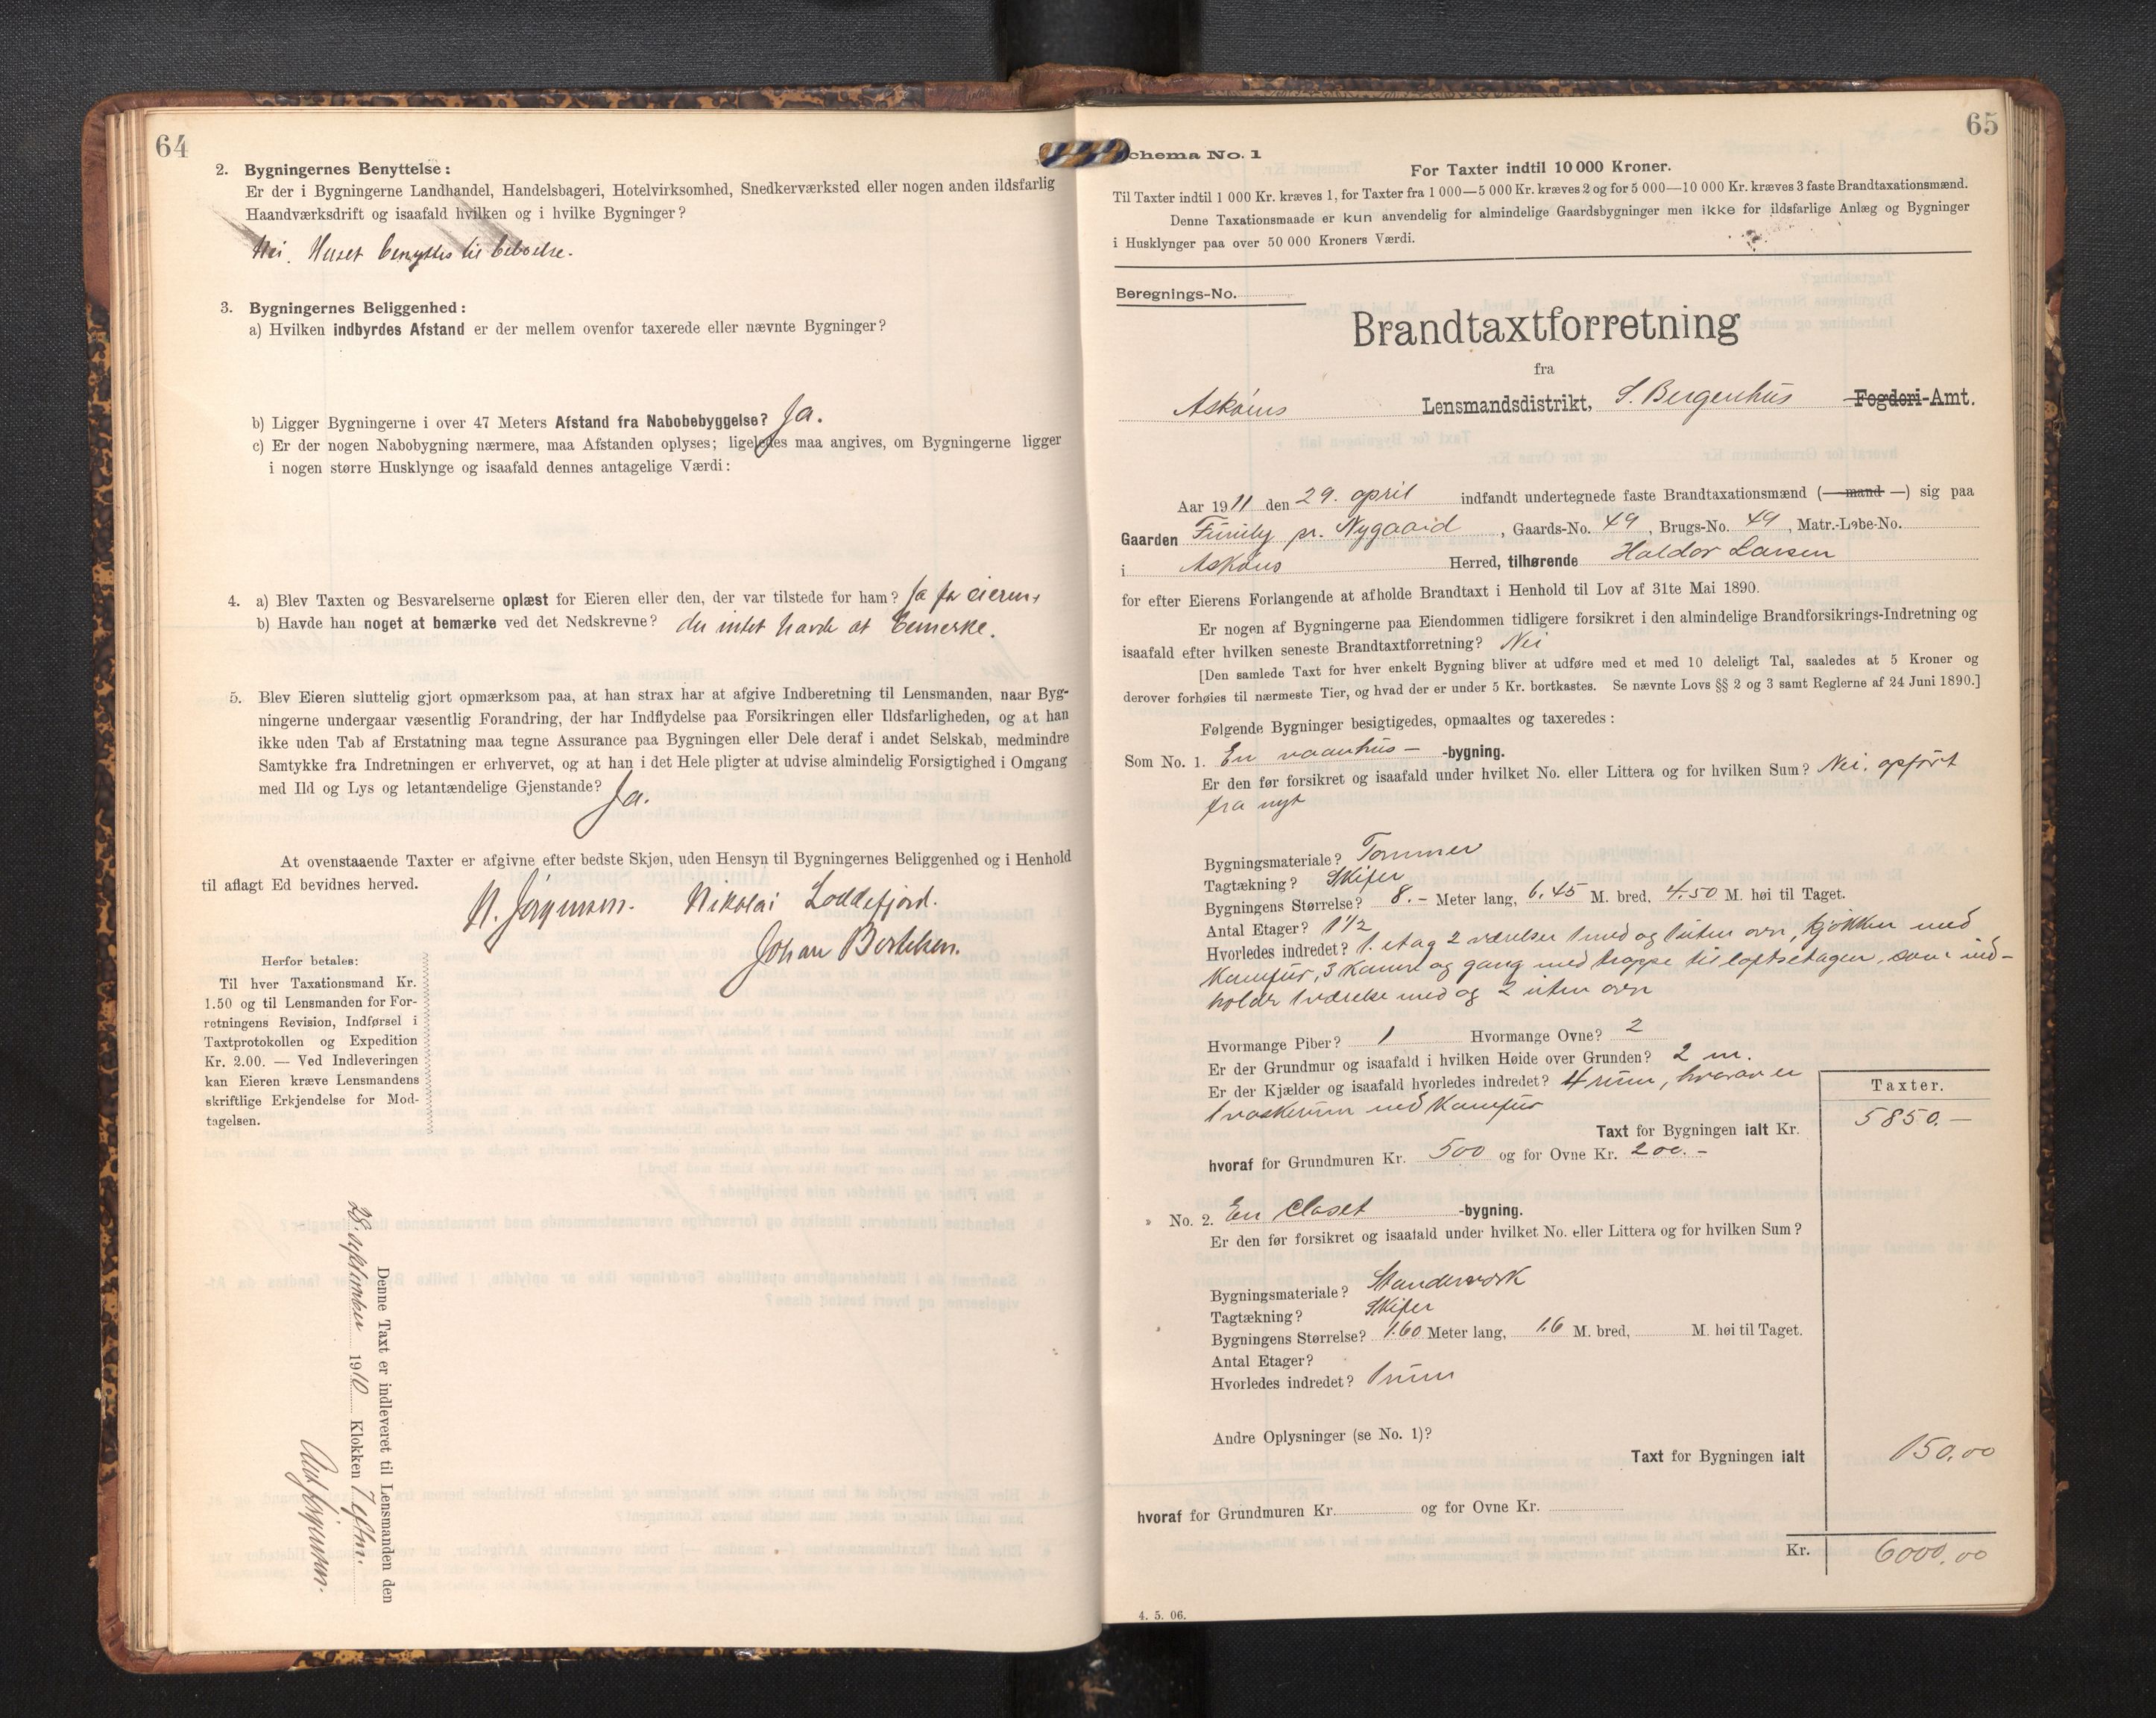 64
2. Bygningernes Benyttelse:
Er der i Bygningerne Landhandel, Handelsbageri, Hotelvirksomhed, Snedkerværksted eller nogen anden ildsfarlig
Haandværksdrift og isaafald hvilken og i hvilke Bygninger?
Nei. Huset benyttes til beboelse.
3. Bygningernes Beliggenhed:
a) Hvilken indbyrdes Afstand er der mellem ovenfor taxerede eller nævnte Bygninger?
b) Ligger Bygningerne i over 47 Meters Afstand fra Nabobebyggelse? Ja.
c) Er der nogen Nabobygning nærmere, maa Afstanden oplyses; ligeledes maa angives, om Bygningerne ligger
i nogen større Husklynge og isaafald dennes antagelige Værdi:
4. a) Blev Taxten og Besvarelserne oplæst for Eieren eller den, der var tilstede for ham? Ja for eieren,
b) Havde han noget at bemærke ved det Nedskrevne? der intet havde at bemerke.
5. Blev Eieren sluttelig gjort opmærksom paa, at han strax har at afgive Indberetning til Lensmanden, naar Byg-
ningerne undergaar væsentlig Forandring, der har Indflydelse paa Forsikringen eller Ildsfarligheden, og at han
ikke uden Tab af Erstatning maa tegne Assurance paa Bygningen eller Dele deraf i andet Selskab, medmindre
Samtykke fra Indretningen er erhvervet, og at han i det Hele pligter at udvise almindelig Forsigtighed i Omgang
med Ild og Lys og letantændelige Gjenstande? Ja.
At ovenstaaende Taxter er afgivne efter bedste Skjøn, uden Hensyn til Bygningernes Beliggenhed og i Henhold
til aflagt Ed bevidnes herved.
N. Jørgensen. Nikolai Loddefjord.
Johan Bertelsen.
Herfor betales:
Til hver Taxationsmand Kr.
1.50 og til Lensmanden for For-
retningens Revision, Indførsel i
Taxtprotokollen og Expedition
Kr. 2.00. — Ved Indleveringen
kan Eieren kræve Lensmandens
skriftlige Erkjendelse for Mod-
tagelsen.
Denne Taxt er indleveret til Lensmanden den
28. september 1910 Klokken 7 eftm.
65
Schema No. 1
For Taxter indtil 10 000 Kroner.
Til Taxter indtil 1 000 Kr. kræves 1, for Taxter fra 1 000—5 000 Kr. kræves 2 og for 5 000—10 000 Kr. kræves 3 faste Brandtaxationsmænd.
Denne Taxationsmaade er kun anvendelig for almindelige Gaardsbygninger men ikke for ildsfarlige Anlæg og Bygninger
i Husklynger paa over 50 000 Kroners Værdi.
Beregnings-No.
Brandtaxtforretning
fra
Askøens Lensmandsdistrikt, S. Bergenhus Fogderi-Amt.
Aar 1911 den 29. april indfandt undertegnede faste Brandtaxationsmænd (— mand —) sig paa
Gaarden pr. Nygaard, Gaards-No. 49, Brugs-No. 49, Matr.-Løbe-No.
i Askøens Herred, tilhørende Haldor Larsen
for efter Eierens Forlangende at afholde Brandtaxt i Henhold til Lov af 31te Mai 1890.
Er nogen af Bygningerne paa Eiendommen tidligere forsikret i den almindelige Brandforsikrings-Indretning og
isaafald efter hvilken seneste Brandtaxtforretning? Nei
[Den samlede Taxt for hver enkelt Bygning bliver at udføre med et med 10 deleligt Tal, saaledes at 5 Kroner og
derover forhøies til nærmeste Tier, og hvad der er under 5 Kr. bortkastes. Se nævnte Lovs §§ 2 og 3 samt Reglerne af 24 Juni 1890.]
Følgende Bygninger besigtigedes, opmaaltes og taxeredes:
Som No. 1. En vaanhus- -bygning.
Er den før forsikret og isaafald under hvilket No. eller Littera og for hvilken Sum? Nei. opført
fra nyt
Bygningsmateriale? Tømmer
Tagtækning? Skifer
Bygningens Størrelse? 8.- Meter lang, 6,45 M. bred, 4.50 M. høi til Taget.
Antal Etager? 1½
Hvorledes indredet? 1. etag 2 værelser 1 med og 1 uten ovn, kjøkken med
Komfur, 3 Kamre og gang med trappe til loftsetagen, som ind-
holder 1 værelse med og 2 uten ovn
Hvormange Piber? 1 Hvormange Ovne? 2
Er der Grundmur og isaafald i hvilken Høide over Grunden? 2 m.
Er der Kjælder og isaafald hvorledes indredet? 4 rum, hvorav er
1 vaskerum med Komfur
Taxter.
Taxt for Bygningen ialt Kr. 5850.—
hvoraf for Grundmuren Kr. 500 og for Ovne Kr. 200.-
No. 2. En Closet -bygning.
Er den før forsikret og isaafald under hvilket No. eller Littera og for hvilken Sum?
Bygningsmateriale? Standerværk
Tagtækning? Skifer
Bygningens Størrelse? 1.60 Meter lang, 1.6 M. bred, M. høi til Taget.
Antal Etager?
Hvorledes indredet? 1 rum
Andre Oplysninger (se No. 1)?
Taxt for Bygningen ialt 150,00
hvoraf for Grundmuren Kr. og for Ovne Kr.
Kr. 6000,00
4. 5. 06.